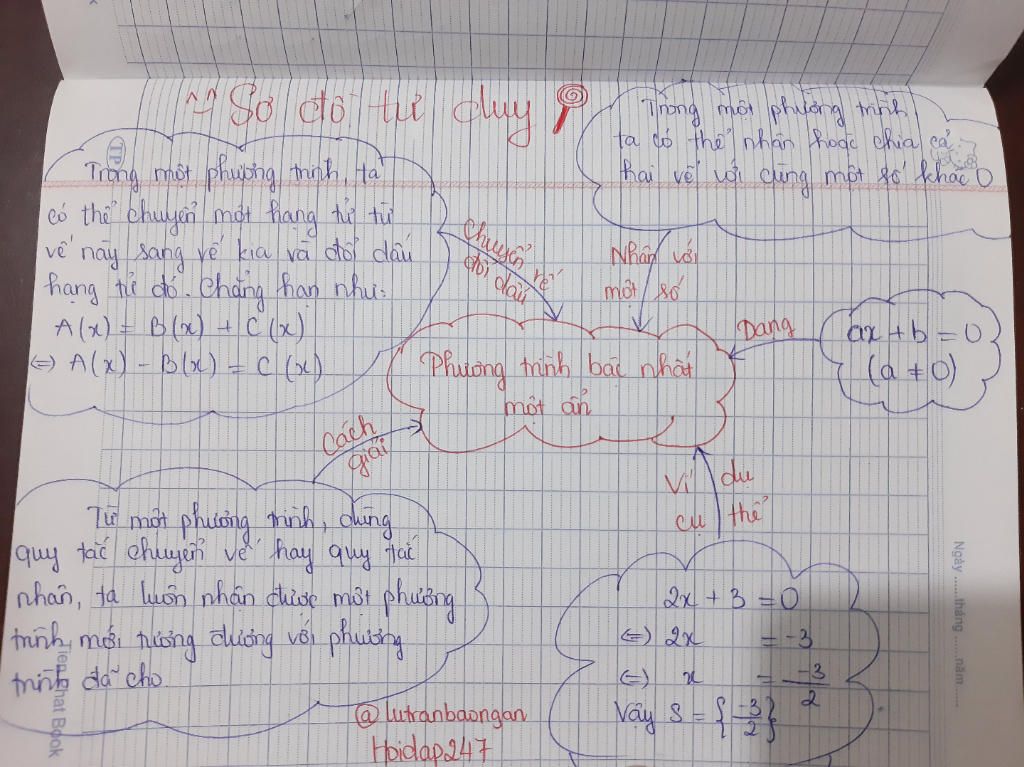 Sơ đồ tư duy
TP
Trong một phương trình, ta
có thể chuyển một hạng tử từ
vế này sang vế kia và đổi dấu
hạng tử đó. Chẳng hạn như:
A(x) = B(x) + C(x)
(=) A(x) - B(x) = C(x)
Chuyển vế
đổi dấu
Trong một phương trình
ta có thể nhân hoặc chia cả
hai vế với cùng một số khác 0
Nhân với
một số
Dạng
ax + b = 0
(a ≠ 0)
Phương trình bậc nhất
một ẩn
Cách
giải
Từ một phương trình, dùng
quy tắc chuyển vế hay quy tắc
nhân, ta luôn nhận được một phương
trình mới tương đương với phương
trình đã cho.
Ví dụ
cụ thể
2x + 3 = 0
(=) 2x = -3
(=) x = -3/2
Vậy S = {-3/2}
@lutranbaongan
Hoidap247
Ngày ......tháng ......năm......
Tiến Phat Book